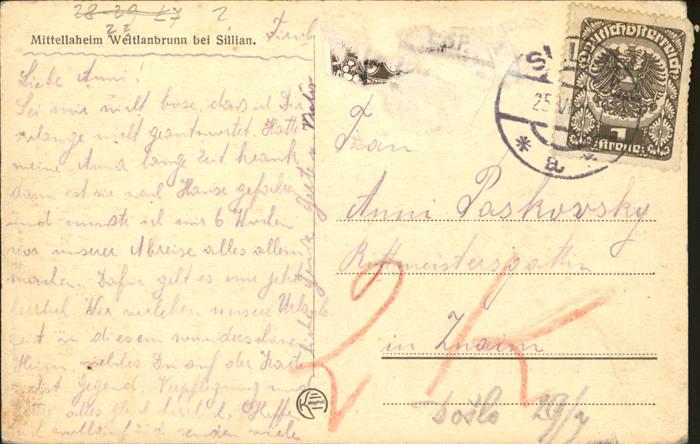 28-29 27 2
Mittellaheim Weitlanbrunn bei Sillian.
Tirol
Liebe Anni!
Sei mir nicht böse, dass ich Dir
solange nicht geantwortet. Hatte
meine Anna lange Zeit krank
dann ist sie nach Hause gefahren
und musste ich mir 6 Wochen
vor unserer Abreise alles allein
machen. Dafür geht es mir jetzt
herrlich. Wir verleben unsere Urlaubs
zeit in diesem wunderschönen
Heim, welches Du auf der Karte
siehst. Gegend, Verpflegung und
alles herrlich. Hoffe
und senden viele
Deutschösterreich
1
Krone
25 VI
a
Frau
Anni Paskovsky
Rittmeistersgattin
in Znaim
2 K
Došlo 29/7